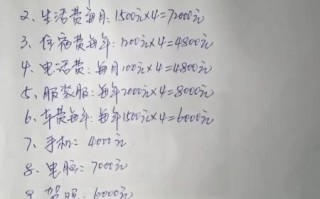 2、生活费每月:1500元×4=72000元
3、住宿费每年:1200元×4=4800元
4、电话费:每月100元×4=4800元
5、服装服:每年2000元×4=8000元
6、车费每年:每年1500元×4=6000元
7、手机:4000元
8、电脑:7000元
9、驾照:6000元